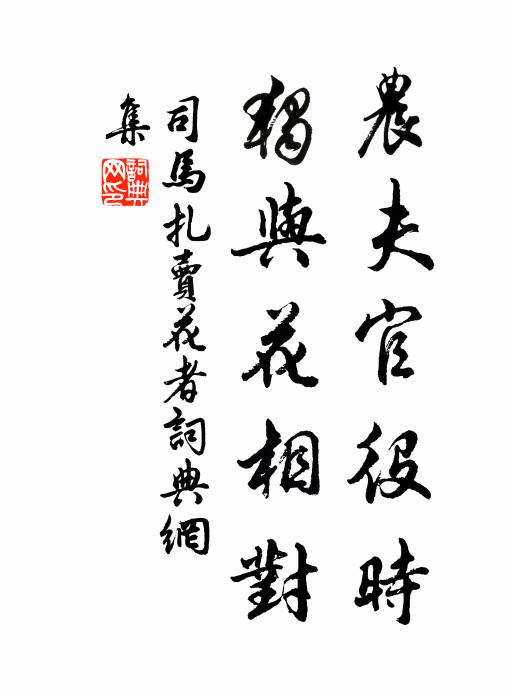 農夫官役時
獨與花相對
司馬扎賣花者詞典網
集
詞典網印